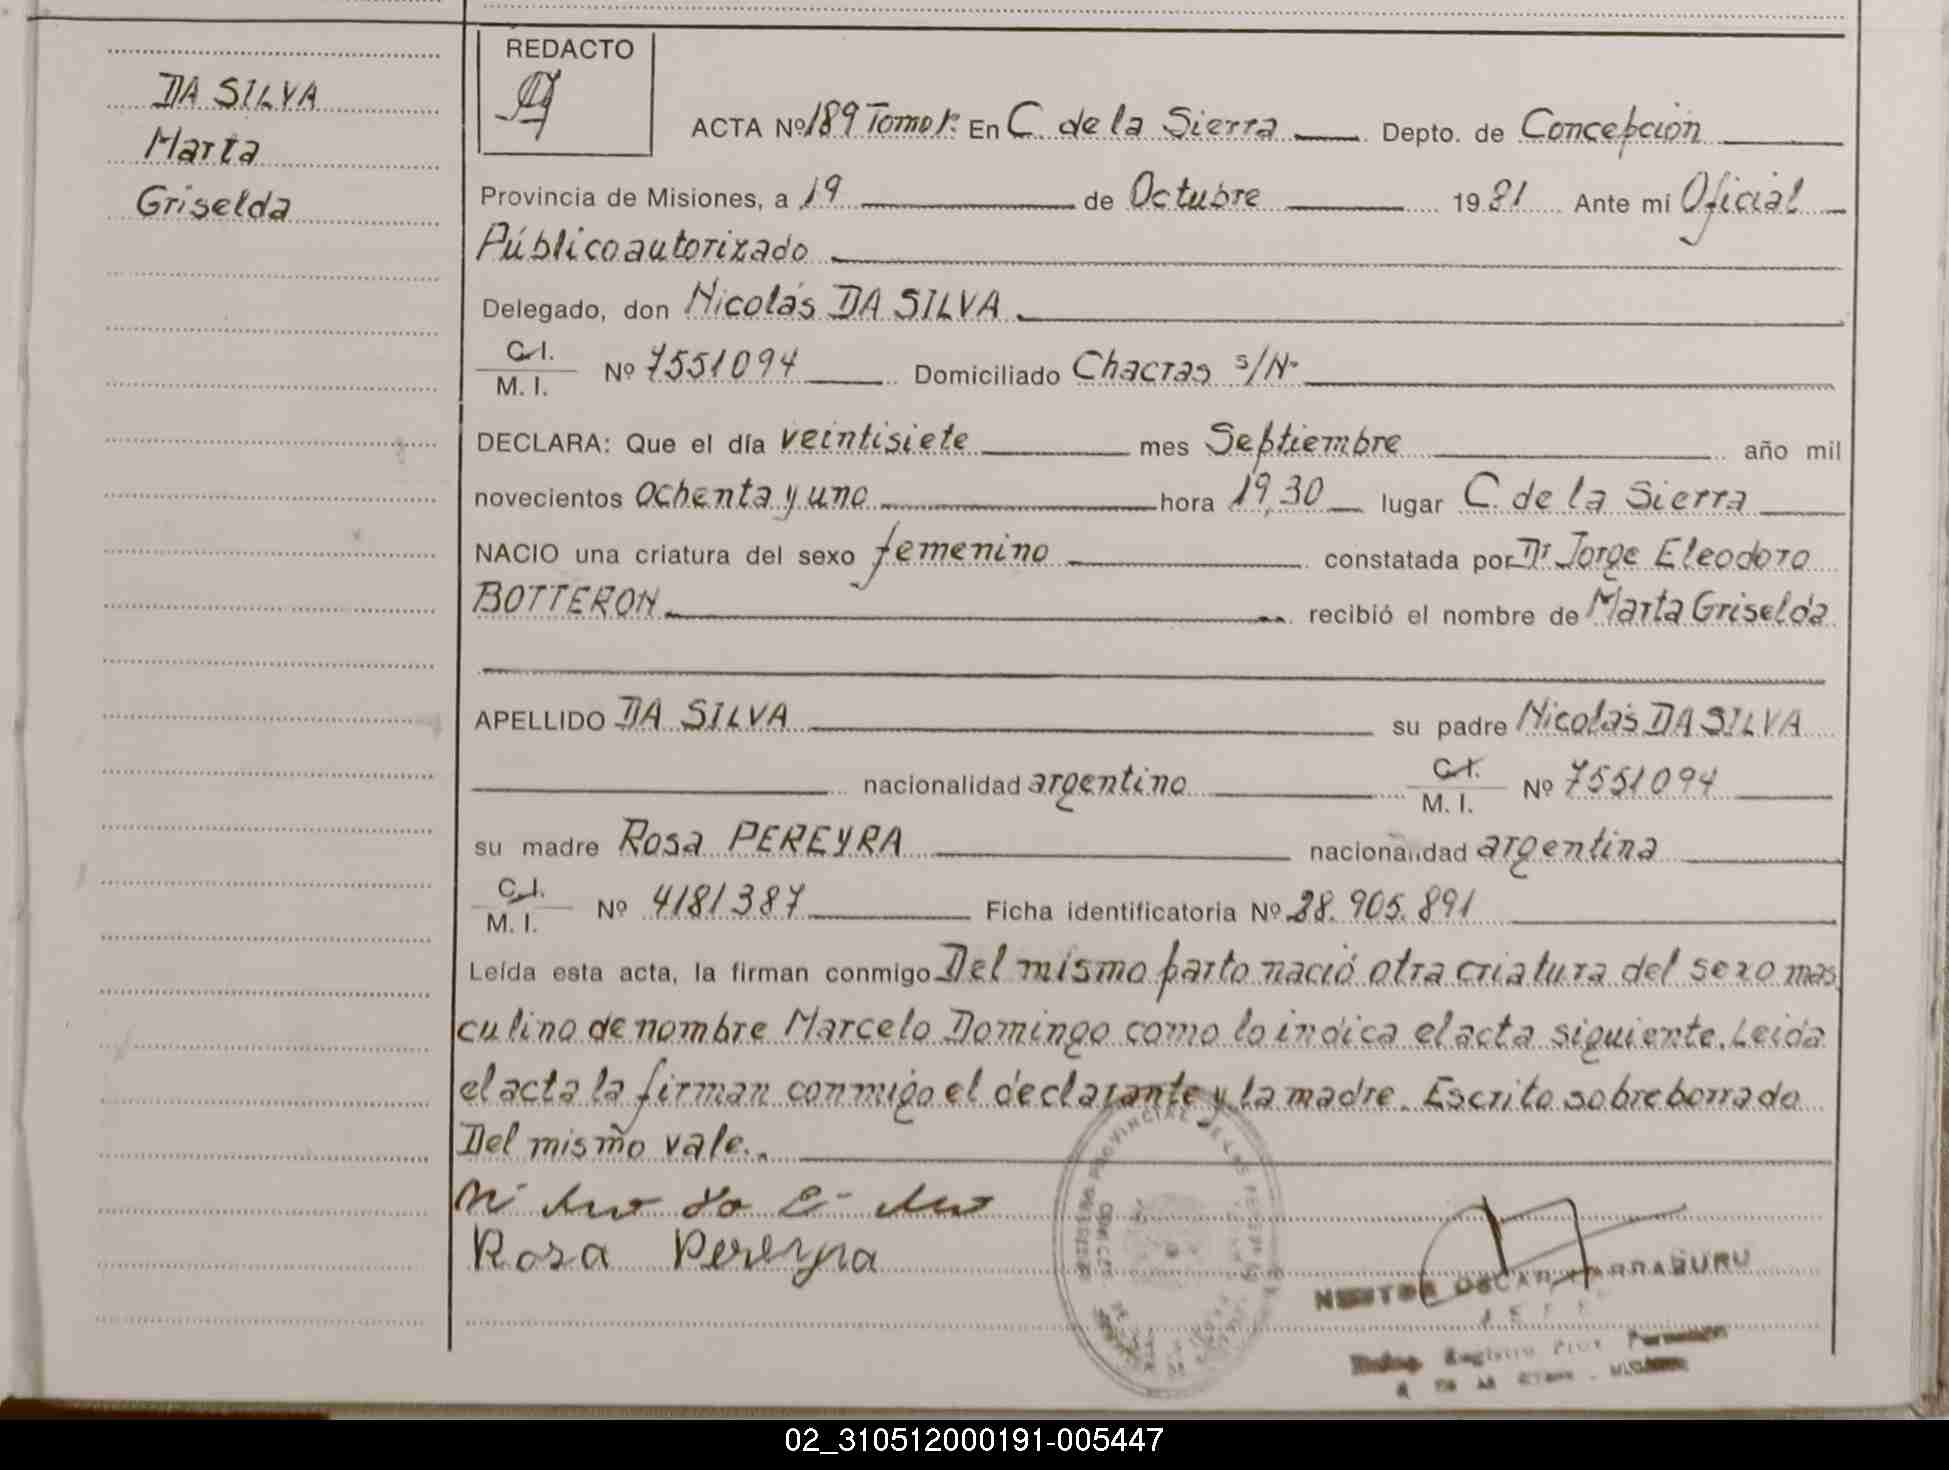 DA SILVA
Marta
Griselda
REDACTO
ACTA Nº 189 Tomo 1º En C. de la Sierra Depto. de Concepción
Provincia de Misiones, a 19 de Octubre 1981 Ante mí Oficial
Público autorizado
Delegado, don Nicolás DA SILVA
C. I.
M. I. Nº 7551094 Domiciliado Chacras s/Nº
DECLARA: Que el día veintisiete mes Septiembre año mil
novecientos ochenta y uno hora 19,30 lugar C. de la Sierra
NACIO una criatura del sexo femenino constatada por Dr Jorge Eleodoro
BOTTERON recibió el nombre de Marta Griselda
APELLIDO DA SILVA su padre Nicolás DA SILVA
nacionalidad argentino C. I. M. I. Nº 7551094
su madre Rosa PEREYRA nacionalidad argentina
C. I.
M. I. Nº 4181387 Ficha identificatoria Nº 28.905.891
Leída esta acta, la firman conmigo Del mismo parto nació otra criatura del sexo mas
culino de nombre Marcelo Domingo como lo indica el acta siguiente. Leida
el acta la firman conmigo el declarante y la madre. Escrito sobreborrado
Del mismo vale..
Rosa Pereyra
NESTOR OSCAR
JEFE
02_310512000191-005447